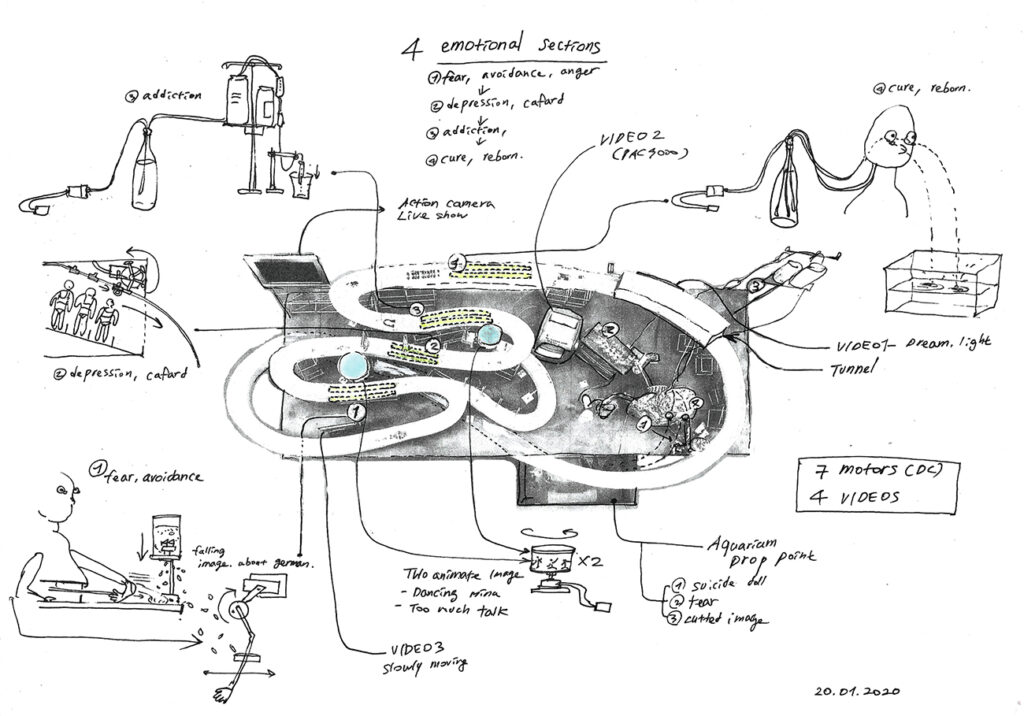 4 emotional sections
① fear, avoidance, anger
② depression, cafard
③ addiction,
④ cure, reborn.
③ addiction
④ cure, reborn.
VIDEO 2
Action camera
Live show
② depression, cafard
1
3
2
1
2
3
4
1
VIDEO1- Dream. light
Tunnel
① fear, avoidance
7 motors (DC)
4 VIDEOS
falling
image. about german.
Two animate image
- Dancing mina
- Too much talk
X2
Aquarium
Drop point
① suicide doll
② tear
③ cutted image
VIDEO3
slowly moving
20.01.2020